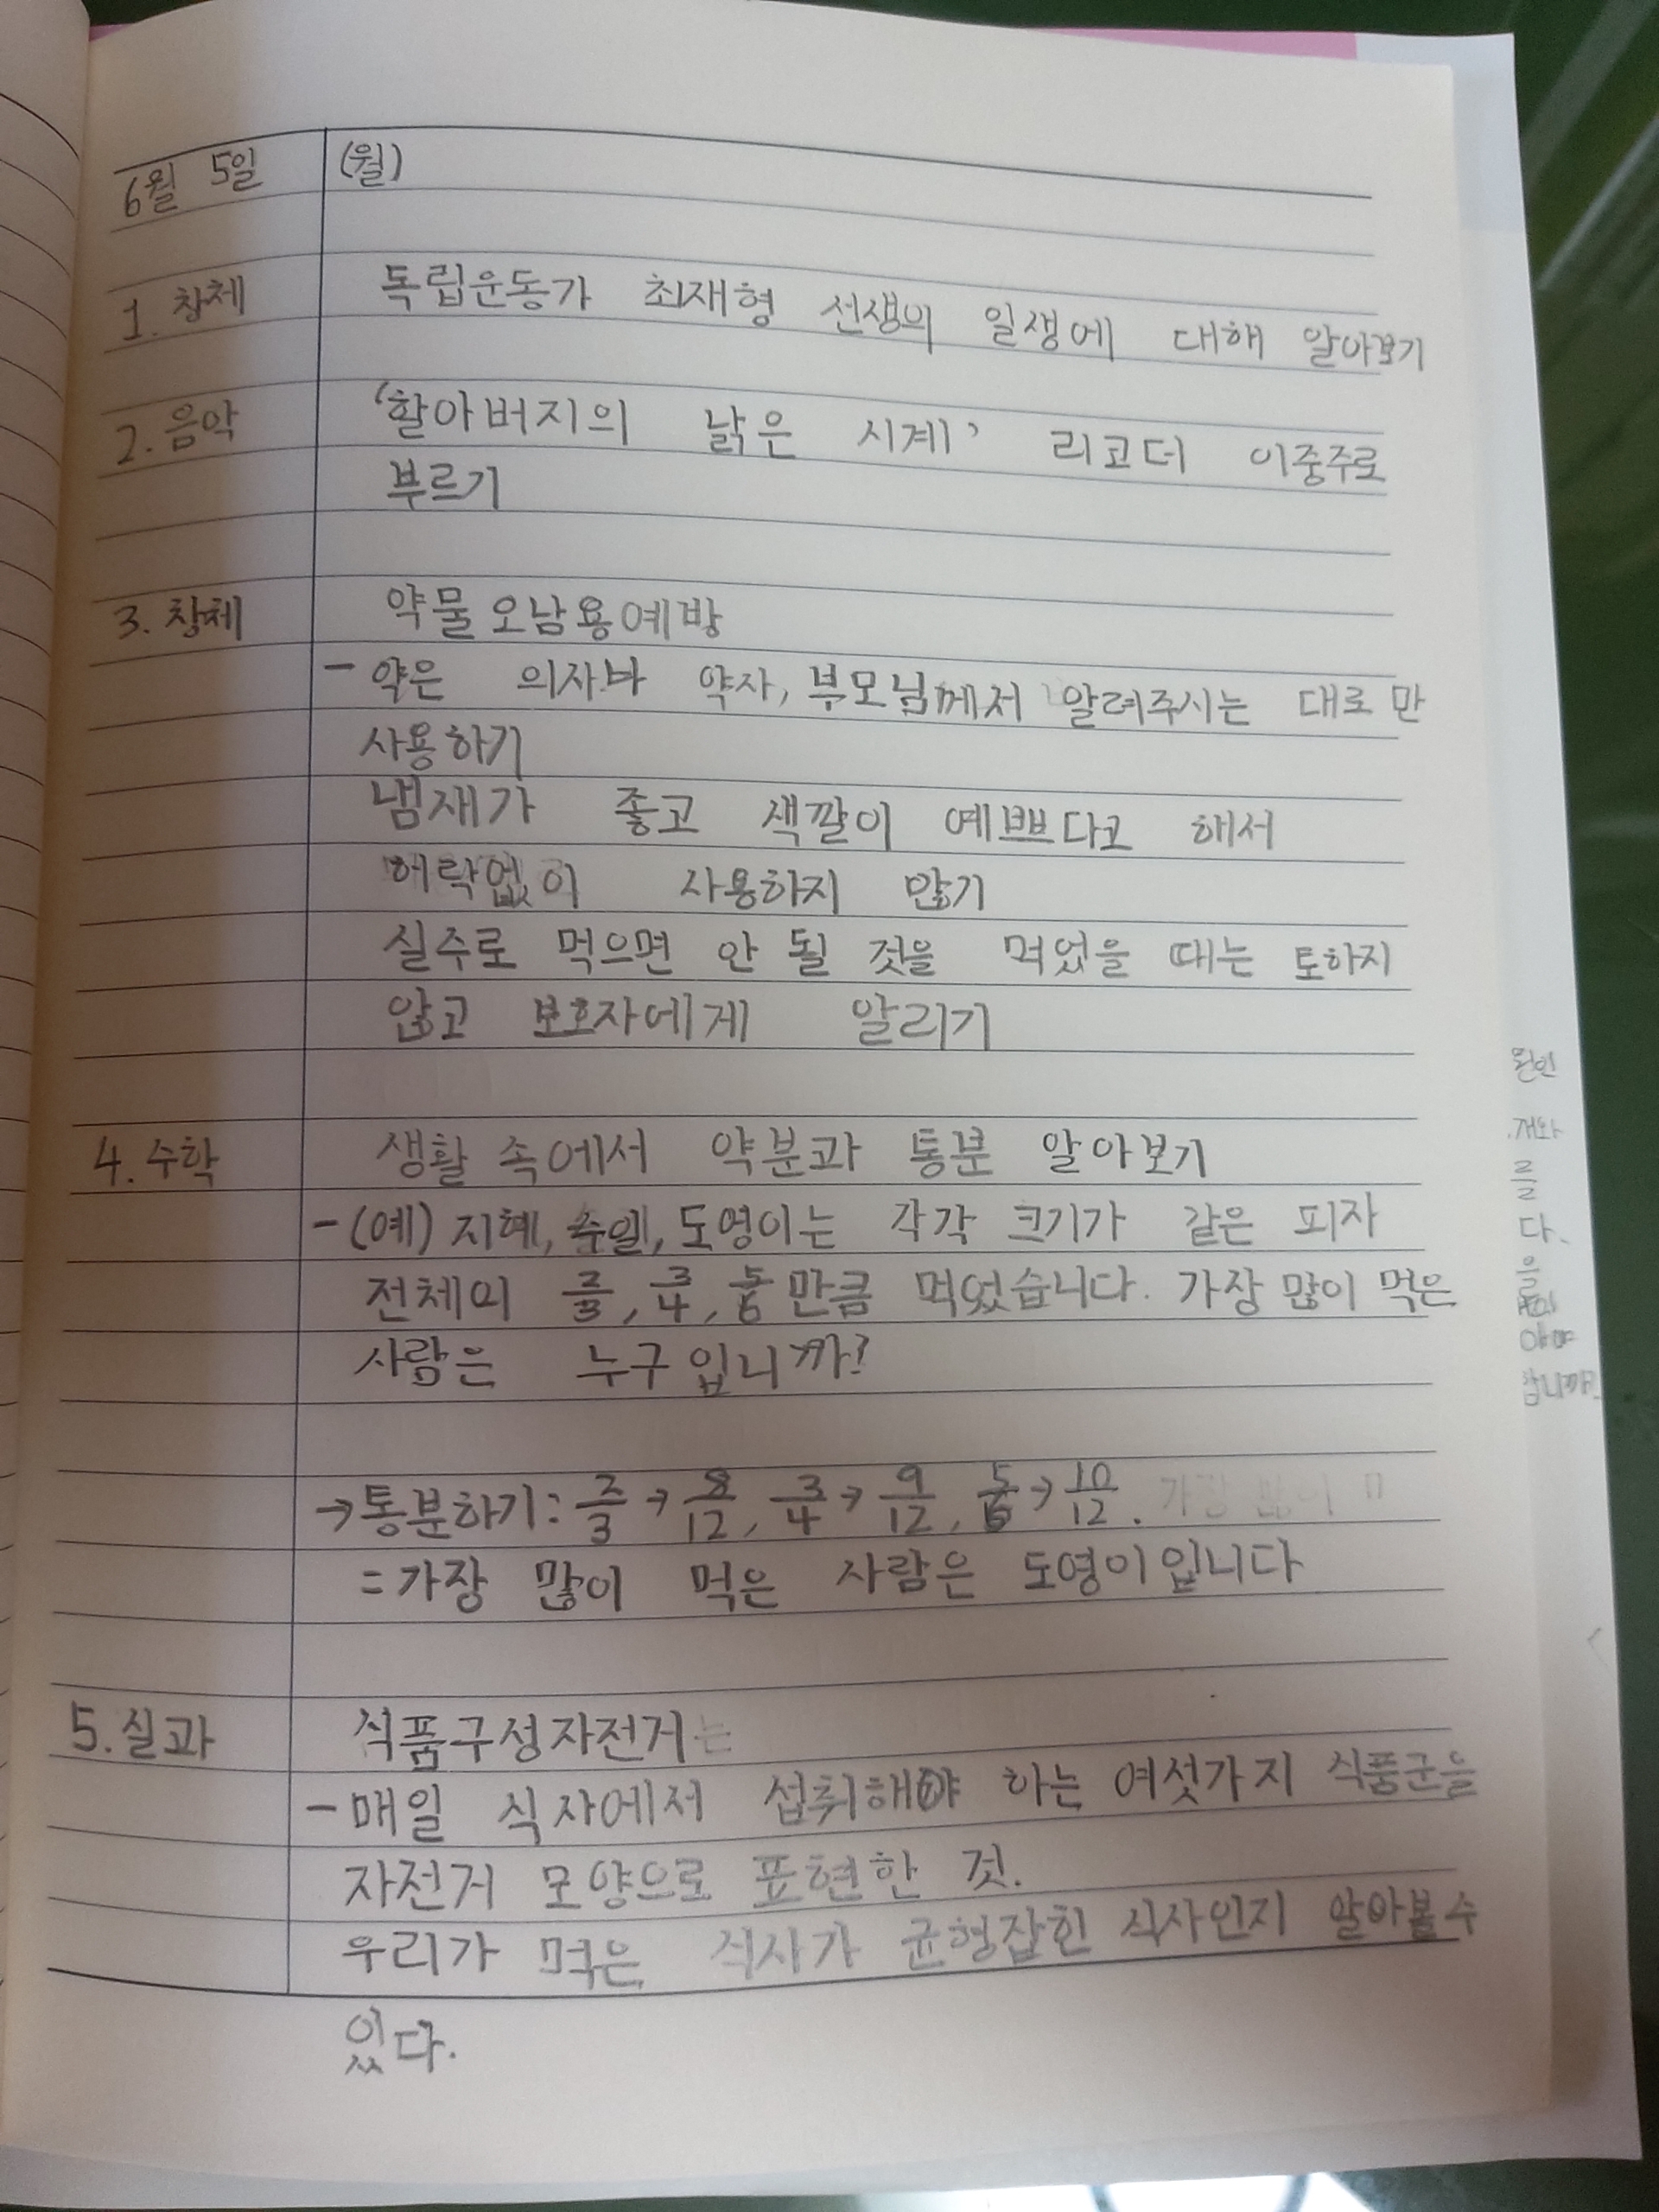 6월 5일 (월)
1. 창체 독립운동가 최재형 선생의 일생에 대해 알아보기
2. 음악 '할아버지의 낡은 시계' 리코더 이중주로
부르기
3. 창체 약물오남용예방
- 약은 의사나 약사, 부모님께서 알려주시는 대로만
사용하기
냄새가 좋고 색깔이 예쁘다고 해서
허락없이 사용하지 않기
실수로 먹으면 안 될 것을 먹었을 때는 토하지
않고 보호자에게 알리기
4. 수학 생활 속에서 약분과 통분 알아보기
- (예) 지혜, 수일, 도영이는 각각 크기가 같은 피자
전체의 2/3, 3/4, 5/6 만큼 먹었습니다. 가장 많이 먹은
사람은 누구입니까?
→ 통분하기: 2/3 → 8/12, 3/4 → 9/12, 5/6 → 10/12.
= 가장 많이 먹은 사람은 도영이입니다
5. 실과 식품구성자전거
- 매일 식사에서 섭취해야 하는 여섯가지 식품군을
자전거 모양으로 표현한 것.
우리가 먹은 식사가 균형잡힌 식사인지 알아볼 수
있다.
원인
를
다.
을
합니까?